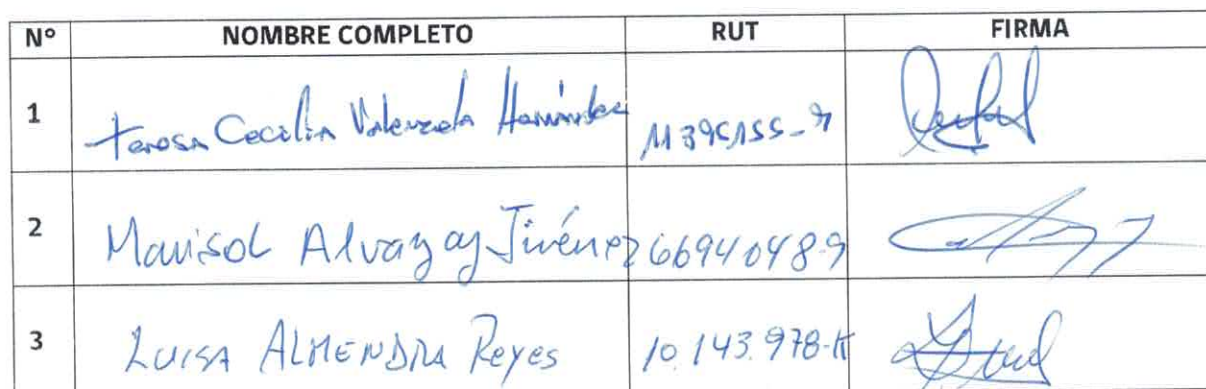 Nº NOMBRE COMPLETO RUT FIRMA
1 Teresa Cecilia Valenzuela Hernández
2 Marisol Alvaray Jiménez 6694048-9
3 Luisa ALMENDRA Reyes 10.143.978-K